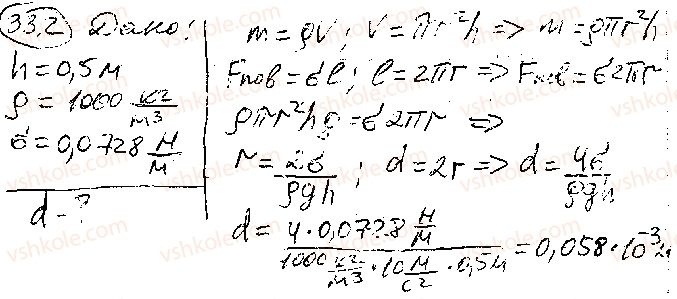 33.2 Дано:
h = 0,5 м
ρ = 1000 кг/м³
σ = 0,0728 Н/м
d - ?
m = ρV; V = πr²h => m = ρπr²h
Fпов = σl; l = 2πr => Fпов = σ2πr
ρπr²hg = σ2πr =>
r = 2σ/ρgh; d = 2r => d = 4σ/ρgh
d = 4·0,0728 Н/м / 1000 кг/м³ · 10 м/с² · 0,5м = 0,058·10⁻³ м
vshkole.com